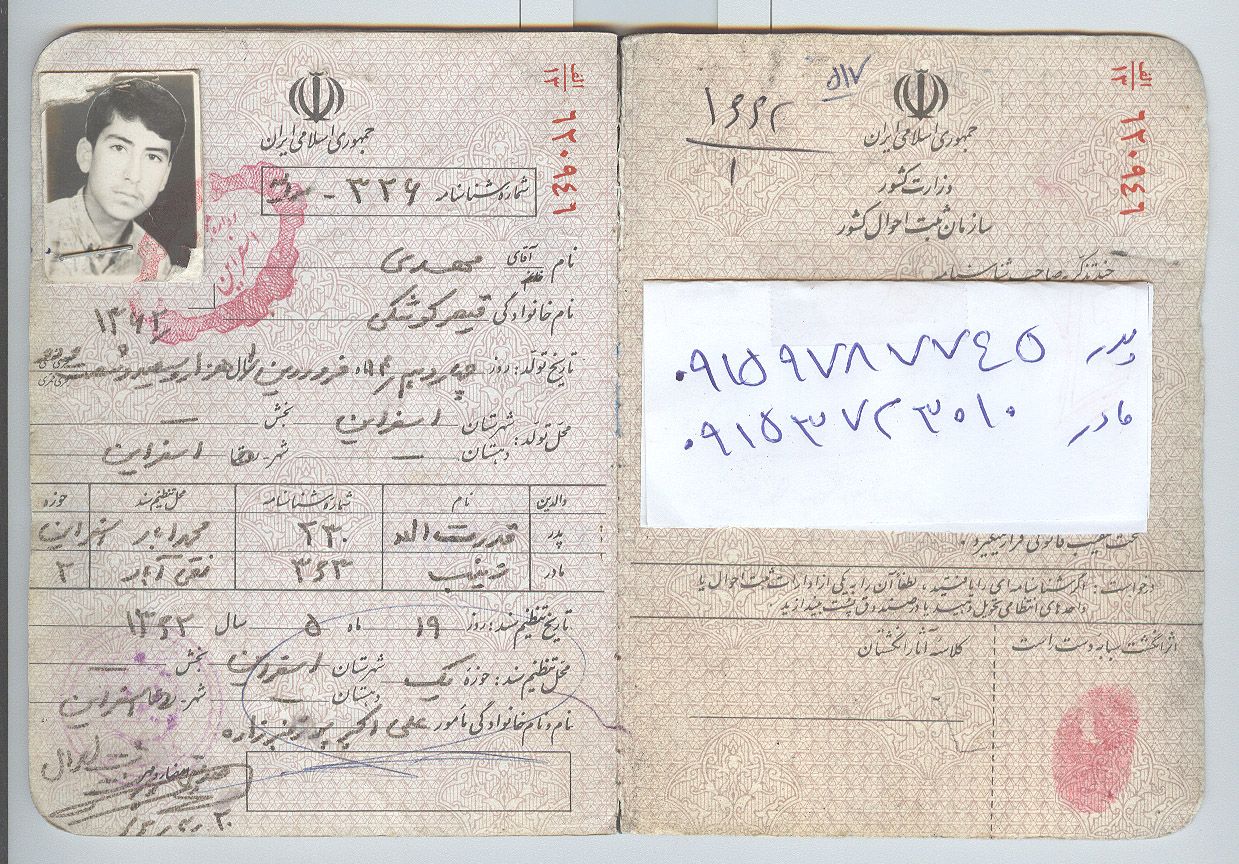 جمهوری اسلامی ایران
وزارت کشور
سازمان ثبت احوال کشور
الف
۱۳
۶۲۰۹۴۶
۵۱۷
۱
چند تذکر به صاحب شناسنامه
پدر ۰۹۱۵۹۷۸۷۷۴۵
مادر ۰۹۱۵۳۷۲۳۵۱۰
تحت تعقیب قانونی قرار میگیرد.
درخواست: اگر شناسنامه‌ای را یافتید، لطفاً آن را به یکی از ادارات ثبت احوال یا
واحدهای انتظامی تحویل دهید یا در صندوق پست بیندازید.
اثر انگشت سبابه دست راست
کلاسه آثار انگشتان
الف
۱۳
۶۲۰۹۴۶
جمهوری اسلامی ایران
شماره شناسنامه ۳۲۶ -
نام آقای مهدی
خانم
نام خانوادگی قیصر کوشکی
۱۳۶۲
تاریخ تولد: روز چهاردهم ماه فروردین سال هزار و سیصد و شصت
محل تولد: شهرستان اسفراین بخش —
دهستان — شهر اسفراین
والدین نام شماره شناسنامه محل تنظیم سند حوزه
پدر قدرت اله ۲۳۰ محمدآباد اسفراین
مادر زینب ۳۶۳ نقی آباد ۲
تاریخ تنظیم سند: روز ۱۹ ماه ۵ سال ۱۳۶۲
محل تنظیم سند: حوزه یک شهرستان اسفراین بخش —
دهستان — شهر اسفراین
نام و نام خانوادگی مأمور علی اکبر
اسفراین